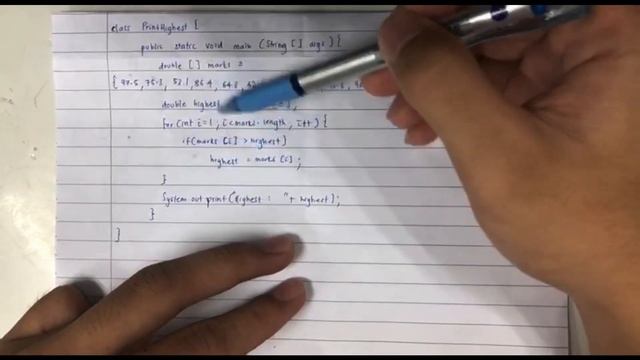 class PrintHighest {
public static void main (String [] args) {
double [] marks =
{ 75.3, 53.1, 86.4, 64.3,
double highest ;
for (int i=1 ; i<marks.length, i++) {
if(marks [i] > highest)
highest = marks [i] ;
}
System out print ("Highest : "+ highest) ;
}
}